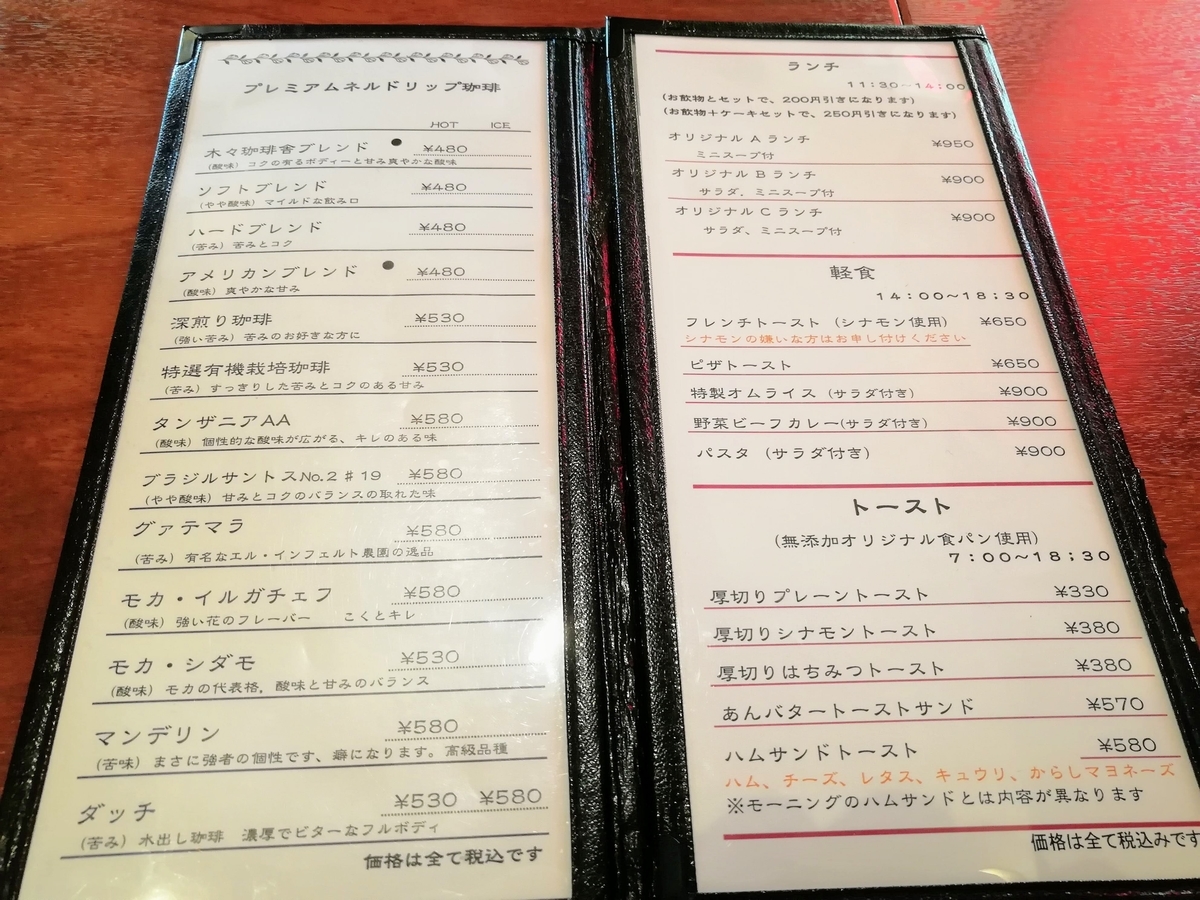 プレミアムネルドリップ珈琲
HOT ICE
木々珈琲舎ブレンド ● ¥480
(酸味) コクの有るボディーと甘み爽やかな酸味
ソフトブレンド ¥480
(やや酸味) マイルドな飲み口
ハードブレンド ¥480
(苦み) 苦みとコク
アメリカンブレンド ● ¥480
(酸味) 爽やかな甘み
深煎り珈琲 ¥530
(強い苦み) 苦みのお好きな方に
特選有機栽培珈琲 ¥530
(苦み) すっきりした苦みとコクのある甘み
タンザニアAA ¥580
(酸味) 個性的な酸味が広がる、キレのある味
ブラジルサントスNo.2♯19 ¥580
(やや酸味) 甘みとコクのバランスの取れた味
グァテマラ ¥580
(苦み) 有名なエル・インフェルト農園の逸品
モカ・イルガチェフ ¥580
(酸味) 強い花のフレーバー こくとキレ
モカ・シダモ ¥530
(酸味) モカの代表格, 酸味と甘みのバランス
マンデリン ¥580
(苦味) まさに強者の個性です、癖になります。高級品種
ダッチ ¥530 ¥580
(苦み) 水出し珈琲 濃厚でビターなフルボディ
価格は全て税込です
ランチ
11:30~14:00
(お飲物とセットで、200円引きになります)
(お飲物+ケーキセットで、250円引きになります)
オリジナルAランチ ¥950
ミニスープ付
オリジナルBランチ ¥900
サラダ、ミニスープ付
オリジナルCランチ ¥900
サラダ、ミニスープ付
軽食
14:00~18:30
フレンチトースト (シナモン使用) ¥650
シナモンの嫌いな方はお申し付けください
ピザトースト ¥650
特製オムライス (サラダ付き) ¥900
野菜ビーフカレー(サラダ付き) ¥900
パスタ (サラダ付き) ¥900
トースト
(無添加オリジナル食パン使用)
7:00~18:30
厚切りプレーントースト ¥330
厚切りシナモントースト ¥380
厚切りはちみつトースト ¥380
あんバタートーストサンド ¥570
ハムサンドトースト ¥580
ハム、チーズ、レタス、キュウリ、からしマヨネーズ
※モーニングのハムサンドとは内容が異なります
価格は全て税込みです